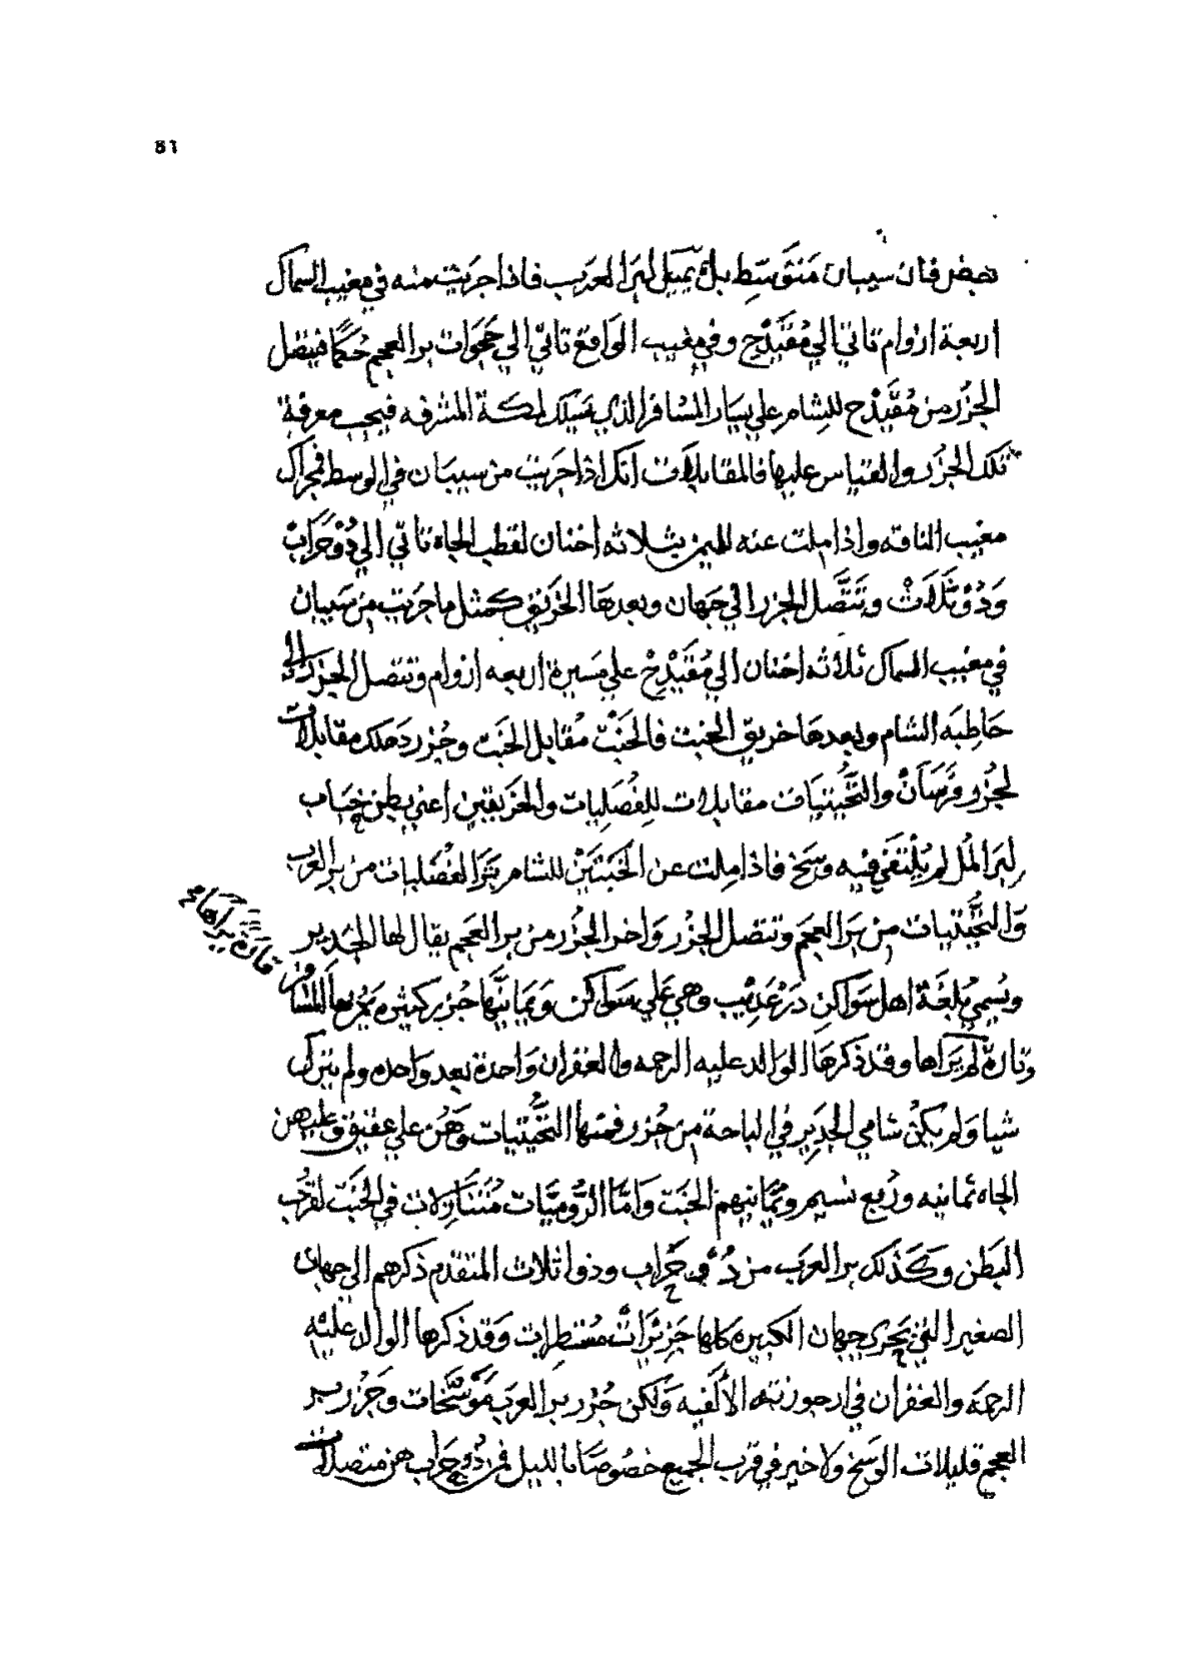 81
هبض فان سيبان متوسط بل يميل لبر العرب فاذا جريت منه في مغيب السماك
اربعة ازوام تاتي الي مقيدح وفي مغيب الواقع تاتي الي حجوات بر العجم حكما فيتصل
الجزر من مقيدح للشام علي يسار المسافر الذي يسلك لمكة المشرفه فيجب معرفة
تلك الجزر والقياس عليها فالمقابلات انك اذا جريت من سيبان في الوسط فمجراك
مغيب الناقه واذا ملت عنه لليمن بثلاثه اخنان لقطب الجاه تاتي الي ذوحراب
وذو ثلاث وتتصل الجزر الي جهان وبعدها الخريق كمثل ما جريت من سيبان
في مغيب السماك ثلاثه اخنان الي مقيدح علي مسيرة اربعه ازوام وتتصل الجزر الي
حاطبه الشام وبعدها خريق الخبت فالخبت مقابل الخبت وجزر دهلك مقابلات
لجزر فرسان والتحيتيات مقابلات للفصليات والخريقين اعني بطن خباب
لبر المل لم يلتقي فيه وسخ فاذا ملت عن الخبتين للشام بتر الفصليات من بر العرب
والتحيتيات من بر العجم وتتصل الجزر واخر الجزر من بر العجم يقال لها الجدير
ويسمي بلغة اهل سواكن درعذيب وهي علي سواكن ويمانيها جزر كثيره يمر بها المسافر
تارة يراها
وتارة لم يراها وقد ذكرها الوالد عليه الرحمه والغفران واحدة بعد واحده ولم يترك
شيا ولم يكن شامي الجدير في الباحة من جزر فمنها التحيتيات وهن علي عقيق وعليهن
الجاه ثمانيه وربع نسيم ويمانيهم الخبت واما الروميات متنازلات في الخبت لقرب
البطن وكذلك بر العرب من ذو حراب وذوا ثلاث المتقدم ذكرهم الي جهان
الصغير التي بحري جهان الكبيره كلها جزيرات منتطرات وقد ذكرها الوالد عليه
الرحمة والغفران في ارجوزته الألفيه ولكن جزر بر العرب موسخات وجزر بر
العجم قليلات الوسخ ولا خير في قرب الجميع خصوصا بالليل فمن ذو حراب هن متصلات